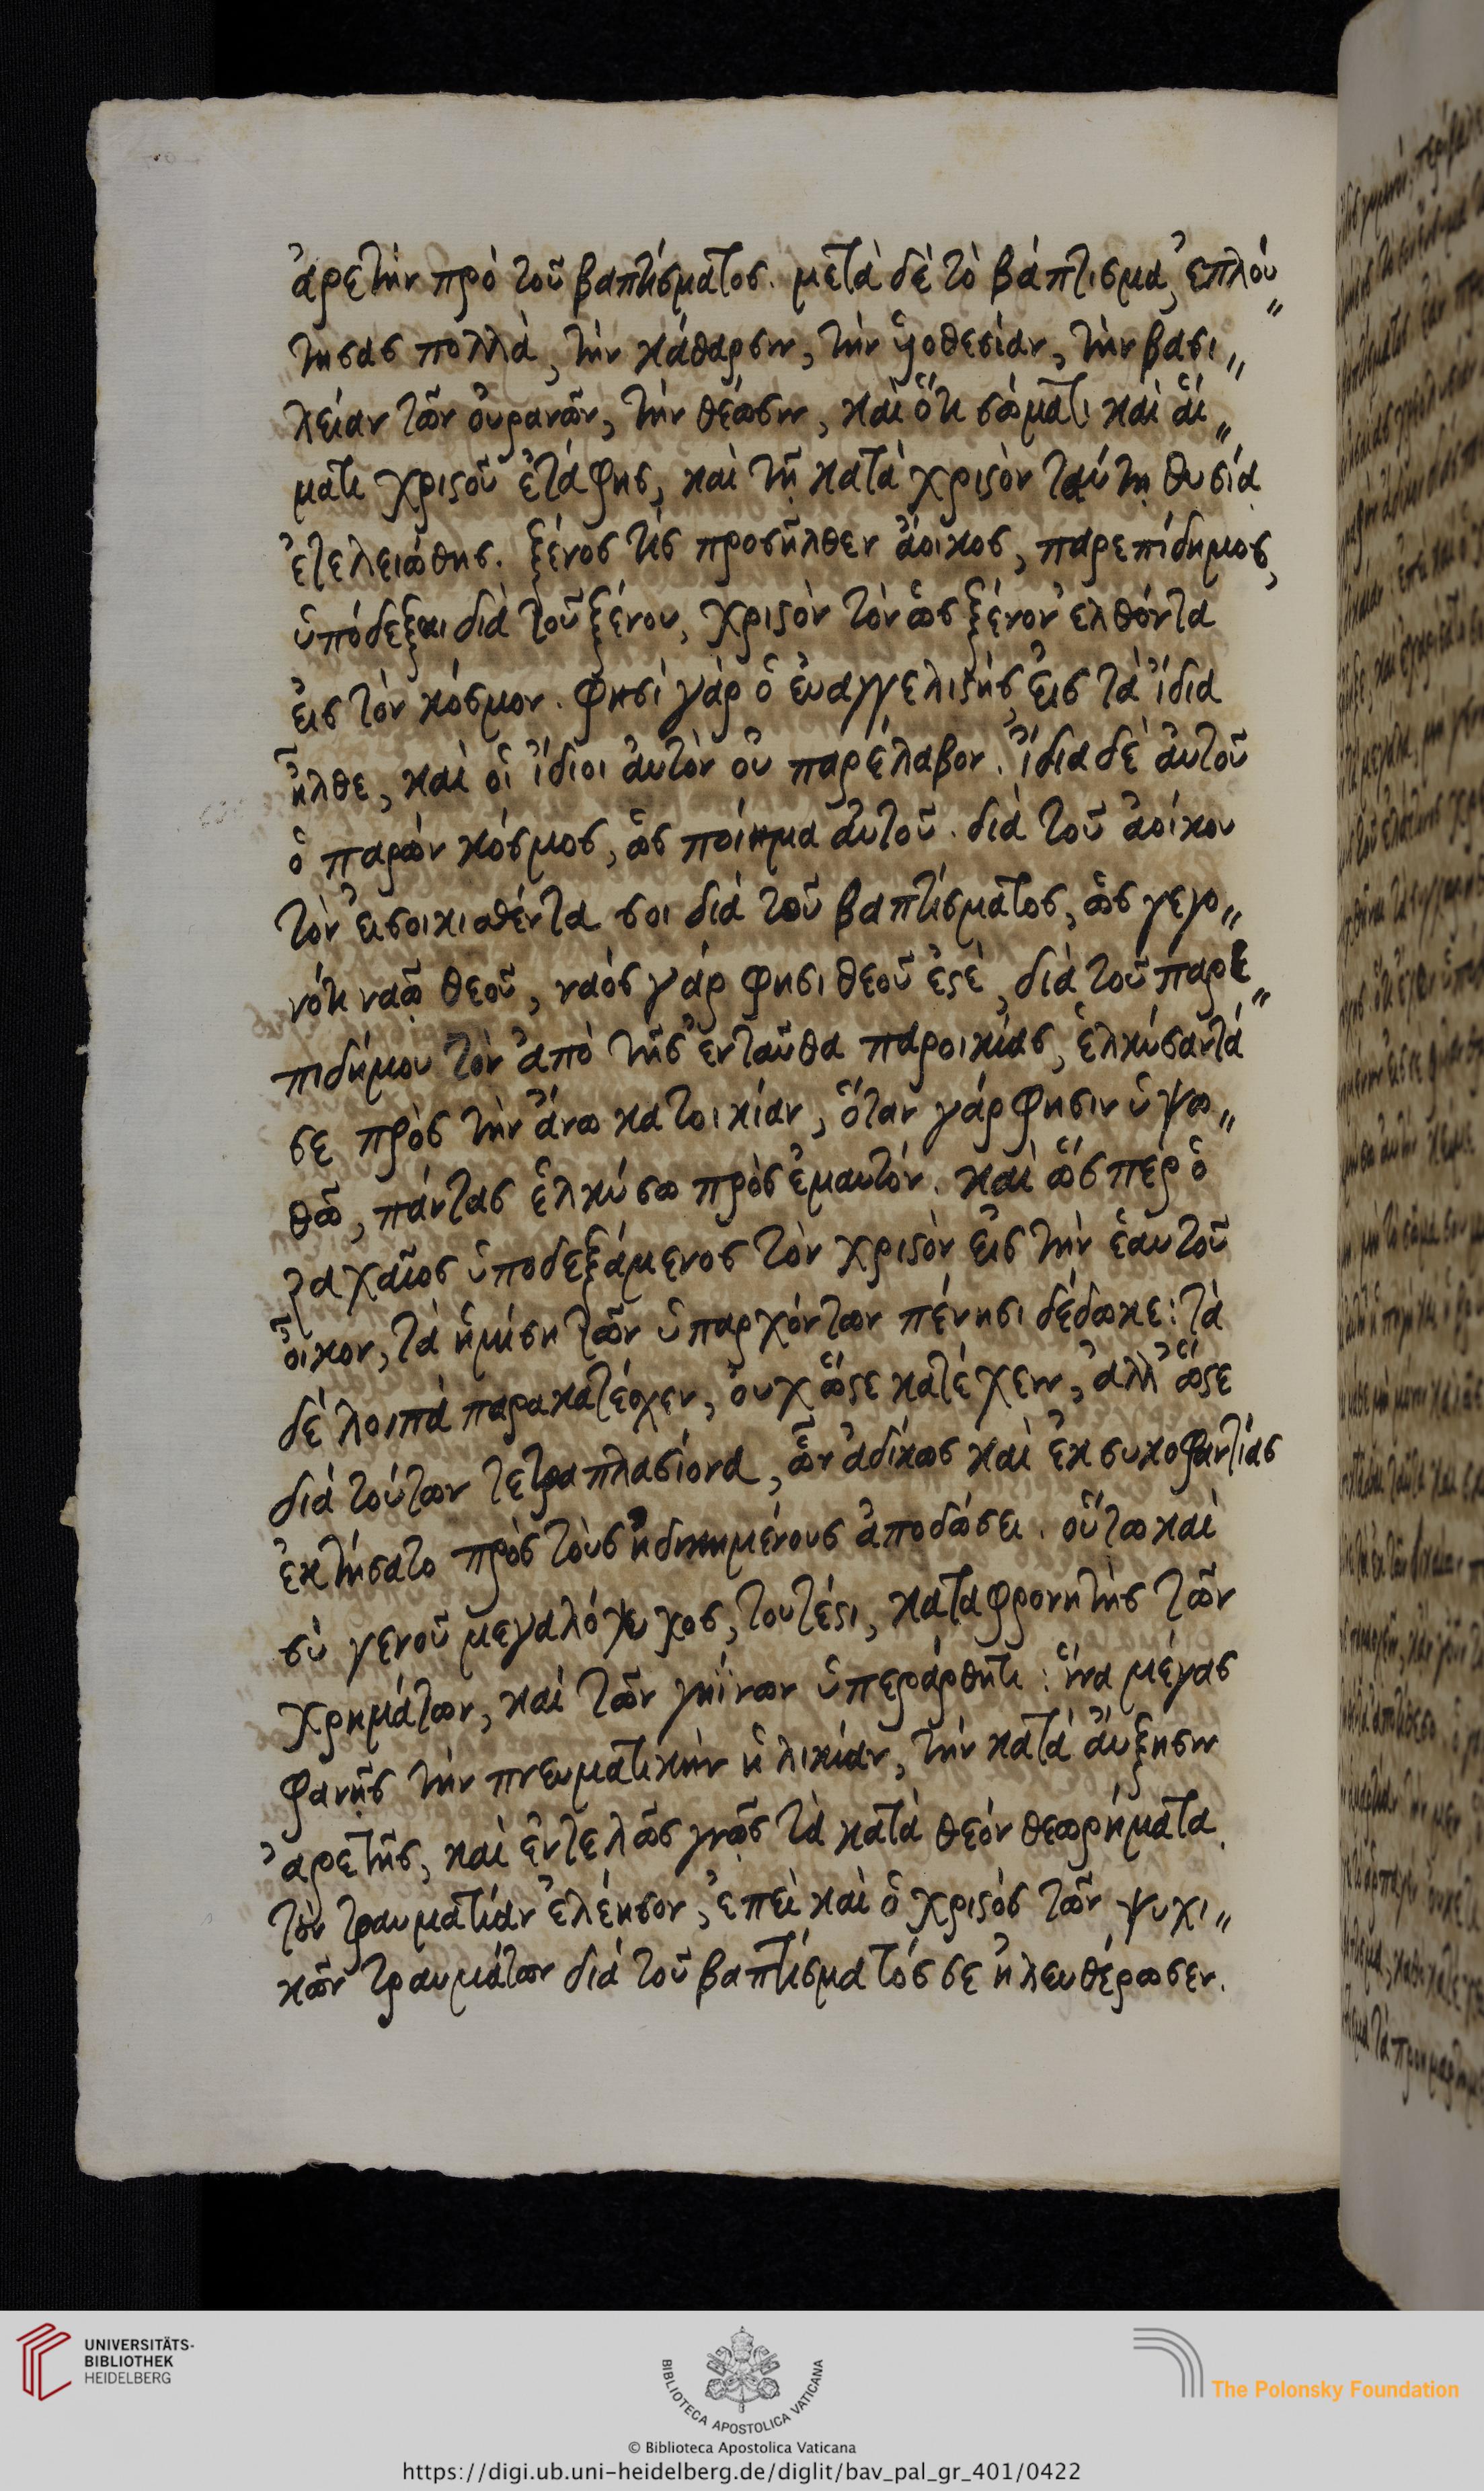 ἀρετὴν πρὸ τοῦ βαπτίσματος. μετὰ δὲ τὸ βάπτισμα, ἐπλού〃
τησας πολλὰ, τὴν κάθαρσιν, τὴν ὑιοθεσίαν, τὴν βασι〃
λείαν τῶν ὀυρανῶν, τὴν θέωσιν, καὶ ὅτι σώματι καὶ ἁί〃
ματι χριϛοῦ ἐτάφης, καὶ τῇ κατὰ χριϛὸν ταύτῃ θυσία
ἐτελειώθης. ξένος τίς προσῆλθεν ἄοικος, παρεπίδημος,
ὑπόδεξαι διὰ τοῦ ξένου, χριϛὸν τὸν ὡς ξένον ἐλθόντα
ἐις τὸν κόσμον. φησὶ γὰρ ὁ ἐυαγγελιϛὴς, ἐις τὰ ἴδια
ἦλθε, καὶ οἱ ἴδιοι ἀυτὸν οὐ παρέλαβον. ἴδια δὲ ἀυτοῦ
ὁ παρὼν κόσμος, ὡς ποίημα ἀυτοῦ. διὰ τοῦ ἀοίκου
τὸν ἐισοικισθέντα σοι διὰ τοῦ βαπτίσματος, ὡς γεγο〃
νότι ναῶ θεοῦ, ναὸς γάρ φησι θεοῦ ἐϛὲ, διὰ τοῦ παρε〃
πιδήμου τὸν ἀπὸ τῆς ἐνταῦθα παροικίας, ἑλκύσαντά
σε πρὸς τὴν ἄνω κατοικίαν, ὅταν γάρ φησιν ὑψω〃
θῶ, πάντας ἑλκύσω πρὸς ἐμαυτόν. καὶ ὥσπερ ὁ
ζαχαῖος ὑποδεξάμενος τὸν χριϛὸν ἐις τὴν ἑαυτοῦ
οἶκον, τὰ ἡμίση τῶν ὑπαρχόντων πένησι δέδωκε: τὰ
δὲ λοιπὰ παρακατέσχεν, ὀυχ ὥϛε κατέχειν, ἀλλ' ὥϛε
διὰ τούτων τετραπλασίονα, ὧν ἀδίκως καὶ ἐκ συκοφαντίας
ἐκτήσατο πρὸς τοὺς ἠδικημένους ἀποδώσει. οὕτω καὶ
σὺ γενοῦ μεγαλόψυχος, τουτέϛι, καταφρονητὴς τῶν
χρημάτων, καὶ τῶν γηΐνων ὑπεράρθητι: ἵνα μέγας
φανῇς τὴν πνευματικὴν ἡλικίαν, τὴν κατὰ ἄυξησιν
ἀρετῆς, καὶ ἐντελῶς γνῷς τὰ κατὰ θεόν θεωρήματα.
τὸν τραυματίαν ἐλέησον, ἐπεὶ καὶ ὁ χριϛὸς τῶν ψυχι〃
κῶν τραυμάτων διὰ τοῦ βαπτίσματός σε ἠλευθέρωσεν.
UNIVERSITÄTS-
BIBLIOTHEK
HEIDELBERG
BIBLIOTECA APOSTOLICA VATICANA
The Polonsky Foundation
© Biblioteca Apostolica Vaticana
https://digi.ub.uni-heidelberg.de/diglit/bav_pal_gr_401/0422